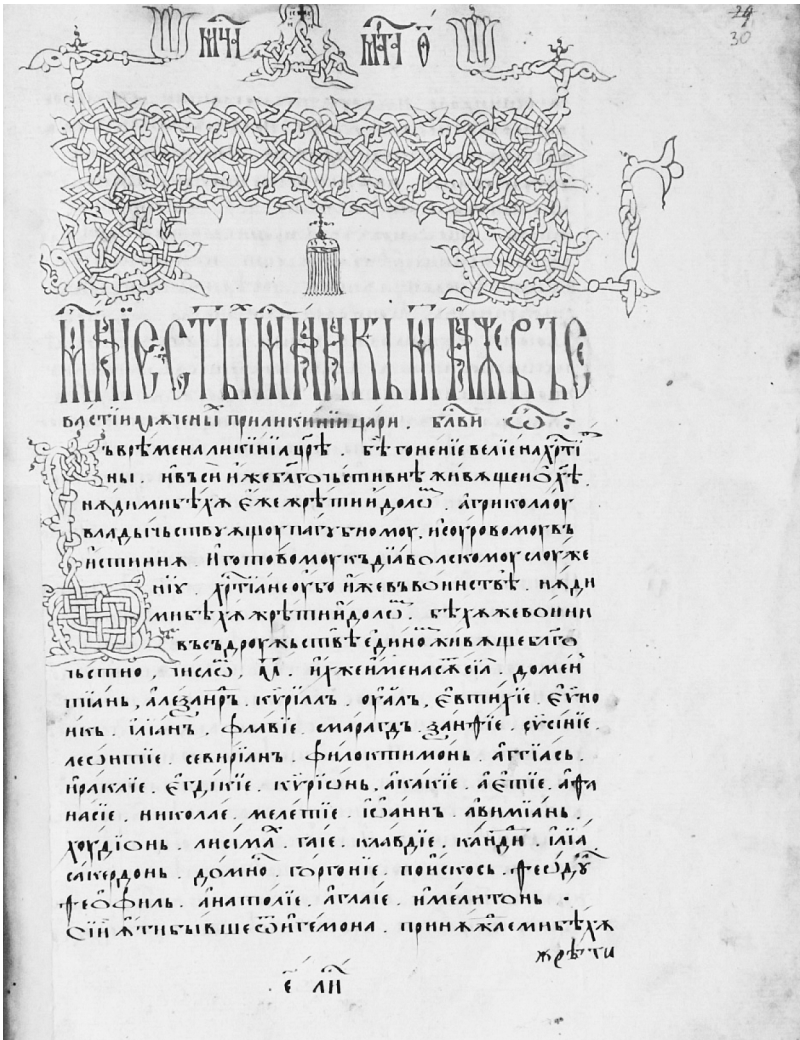 24
30
мч҃і мт҃і ѳ҃
въ врѣмена ликинїа цр҃ѣ . бѣ гоненїе велїе на хрⷭ҇тїа
ны . и въси иже благочьстивнѣ живѧще ѡ хⷭ҇ѣ
нѫдими бѣхѫ еже жрѣти идолѡⷨ . агриколаоу
владычьствуѫщоу пагубномоу . и соуровомоу въ
истиннѫ . и готовомоу къ дїаволскомоу слоуже
нїу . хрⷭ҇тїане оубо иже въ воинствѣ . нѫди
ми бѣхѫ жрѣти идолѡⷨ . бѣхѫ же воини
въ съдроужьствѣ единѡⷨ живѧще благо
чьстно , числѡⷨ , м҃ . ихже имена сѫⷮ сїа . доменⷮ
тїань , алеѯанⷣрь . кѵриллъ . оуалъ , еѵтихїе . еѵно
икь . илїанъ . флавїе . смарагдъ . ѯанѳїе . сисинїе .
леѡнтїе . севирїан . филоктимонь . аггїась .
ираклїе . екдикїе . кѵрїѡнь , акакїе . аетїе . аѳа
насїе . николае . мелетїе . їѡаннъ . авимїань .
хоудїонь . лисимаⷯ . гаїе . клавдїе . кандиⷣ . илїа
сакердонь . домнⷪ . горгонїе . прискось . ѳеодꙋⷧ
ѳеофиль . анатолїе . аглаїе . и мелитонь .
сїи ѧти бывше ѿ игемона . принѫжⷣаеми бѣхѫ
жрѣти